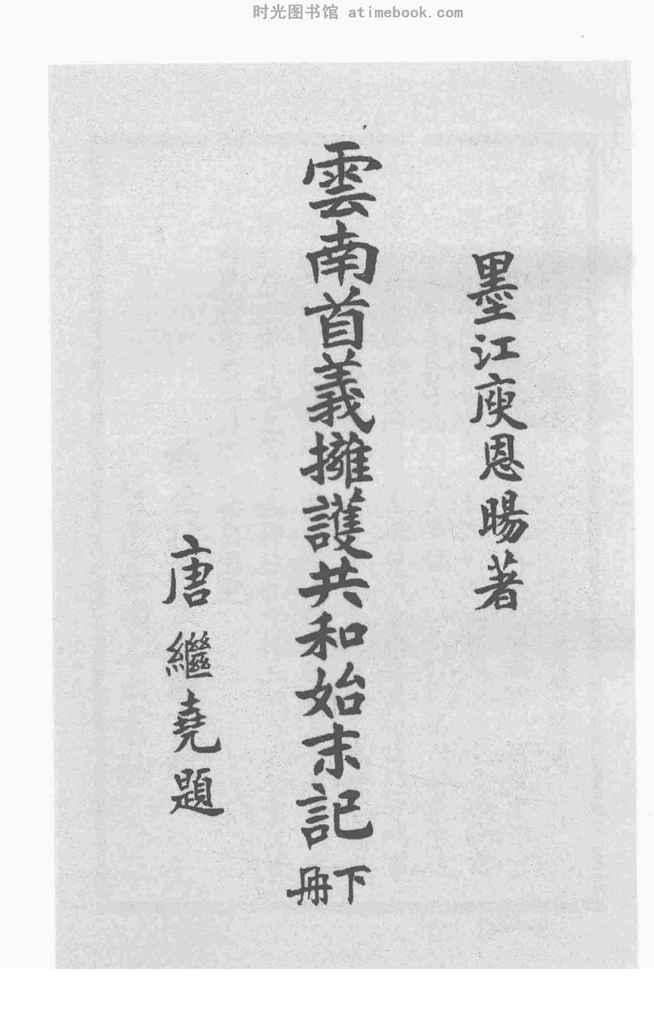 时光图书馆 atimebook.com
墨江庾恩暘著
雲南首義擁護共和始末記
下冊
唐繼堯題